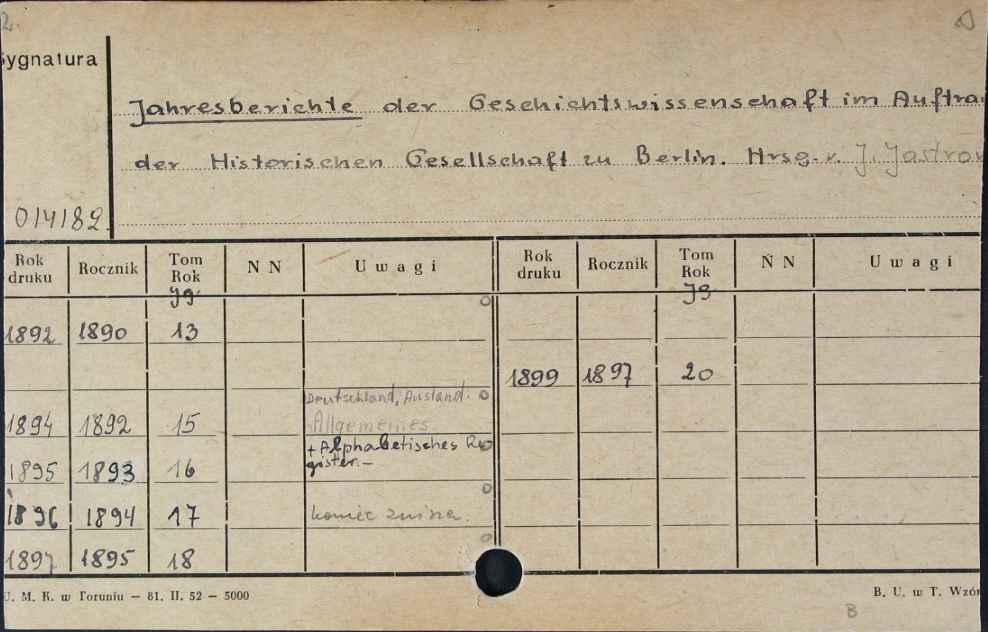 2.
Sygnatura
Jahresberichte der Geschichtswissenschaft im Auftra
der Historischen Gesellschaft zu Berlin. Hrsg. v. J. Jastrow
014182
Rok druku Rocznik Tom Rok N N Uwagi Rok druku Rocznik Tom Rok N N Uwagi
Jg. Jg
1892 1890 13
1899 1897 20
Deutschland, Ausland.
1894 1892 15 Allgemeines.
+ Alphabetisches Re
1895 1893 16 gister.—
1896 1894 17 koniec
1897 1895 18
U. M. K. w Toruniu — 81. II. 52 — 5000
B. U. w T. Wzór
B